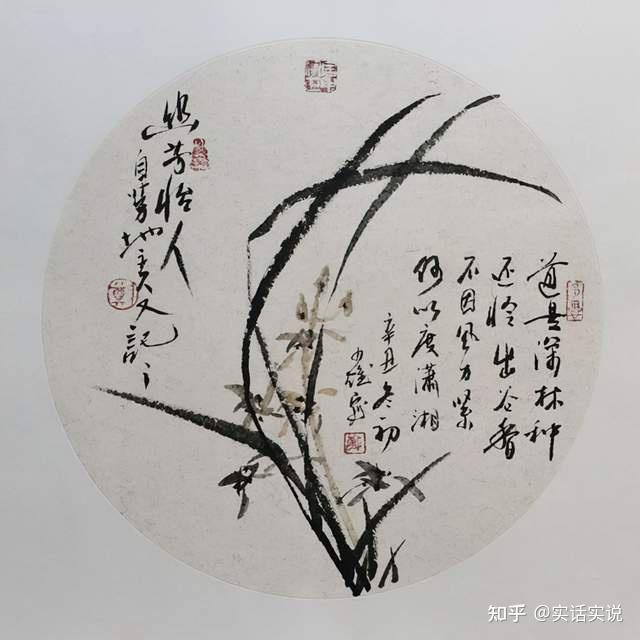 道是深林种
还怜出谷香
不因风力紧
何以度潇湘
辛丑冬初
幽芳怡人
地主又記
知乎 @实话实说